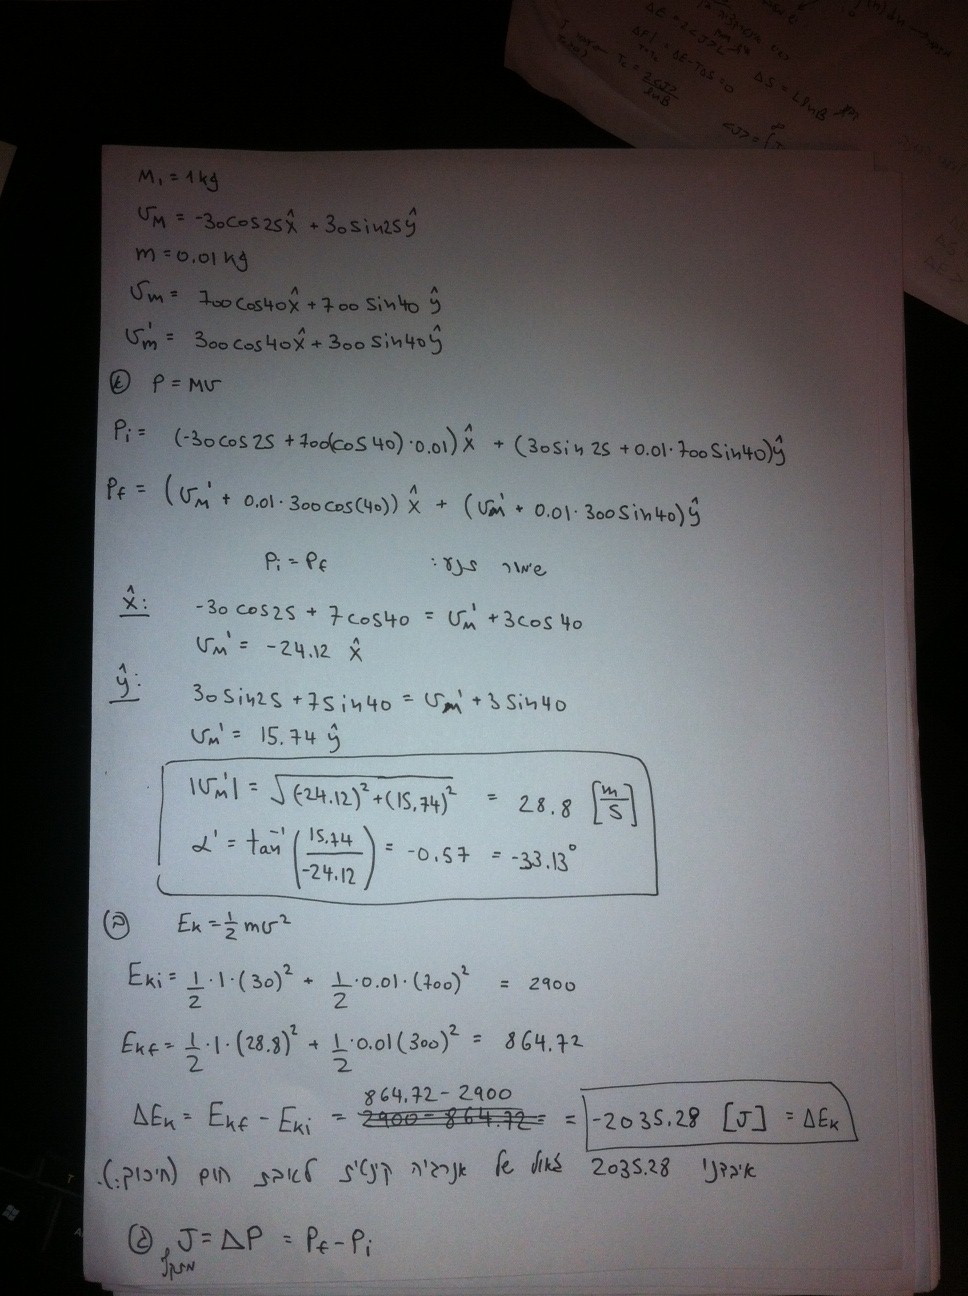 M₁ = 1kg
υ_M = -30cos25x̂ + 30sin25ŷ
m = 0.01 kg
υ_m = 700cos40x̂ + 700 sin40 ŷ
υ_m' = 300cos40x̂ + 300 sin40ŷ
P = Mυ
P_i = (-30cos25 + 700(cos40)·0.01)x̂ + (30sin25 + 0.01·700sin40)ŷ
P_f = (υ_M' + 0.01·300cos(40))x̂ + (υ_M' + 0.01·300sin40)ŷ
P_i = P_f שימור תנע:
x̂: -30cos25 + 7cos40 = υ_M' + 3cos40
υ_M' = -24.12 x̂
ŷ: 30sin25 + 7sin40 = υ_M' + 3sin40
υ_M' = 15.74 ŷ
|υ_M'| = √(-24.12)² + (15.74)² = 28.8 [m/s]
α' = tan⁻¹(15.74/-24.12) = -0.57 = -33.13°
ב E_k = 1/2 mυ²
E_ki = 1/2·1·(30)² + 1/2·0.01·(700)² = 2900
E_kf = 1/2·1·(28.8)² + 1/2·0.01(300)² = 864.72
864.72 - 2900
ΔE_k = E_kf - E_ki = 2900 - 864.72 = = -2035.28 [J] = ΔE_k
איבדנו 2035.28 ג'אול של אנרגיה קינטית לטובת חום (חיכוך:).
ג J = ΔP = P_f - P_i
מתקף